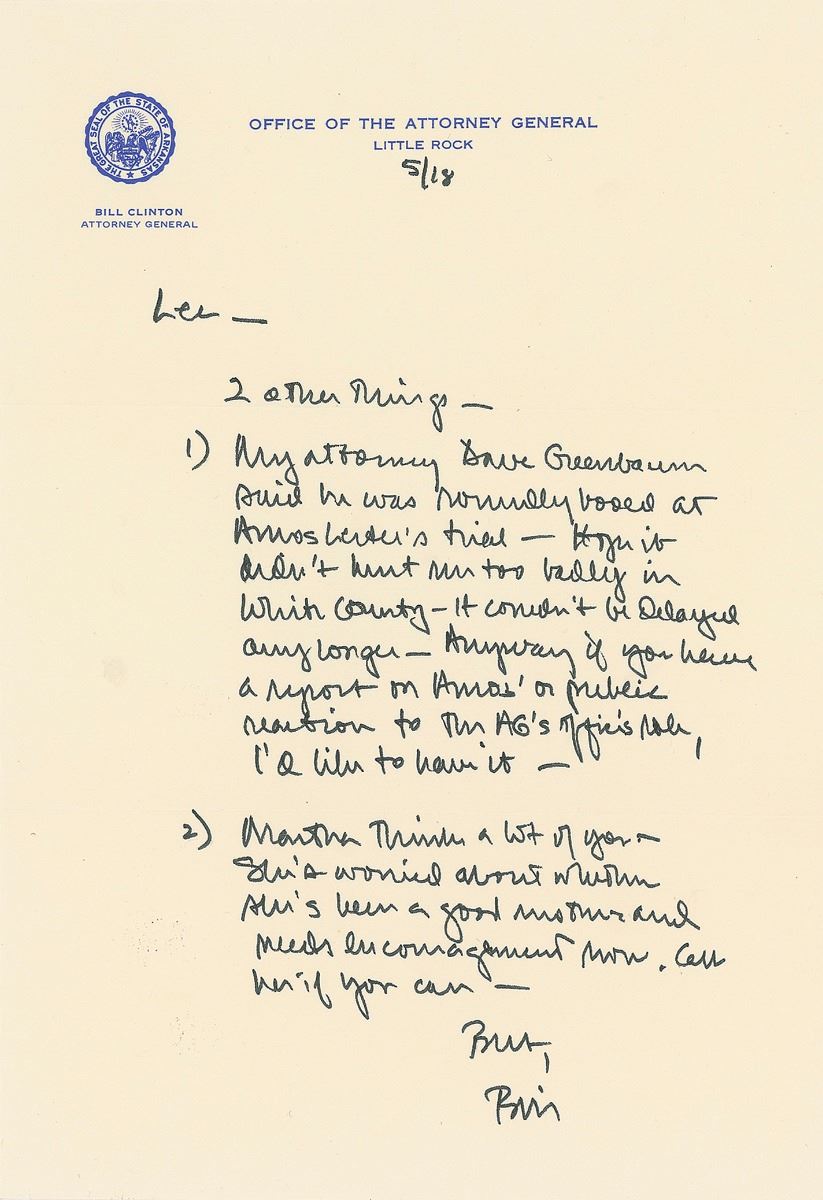 THE GREAT SEAL OF THE STATE OF ARKANSAS
OFFICE OF THE ATTORNEY GENERAL
LITTLE ROCK
5/18
BILL CLINTON
ATTORNEY GENERAL
Lee —
2 other things —
1) My attorney Dave Greenbaum
said he was roundly booed at
Amos trial — Hope it
didn't hurt me too badly in
White County — It couldn't be delayed
any longer — Anyway if you have
a report on Amos' or public
reaction to the AG's office's role,
I'd like to have it —
2) Martha thinks a lot of you —
She's worried about whether
she's been a good mother and
needs encouragement now. Call
her if you can —
Best,
Bill